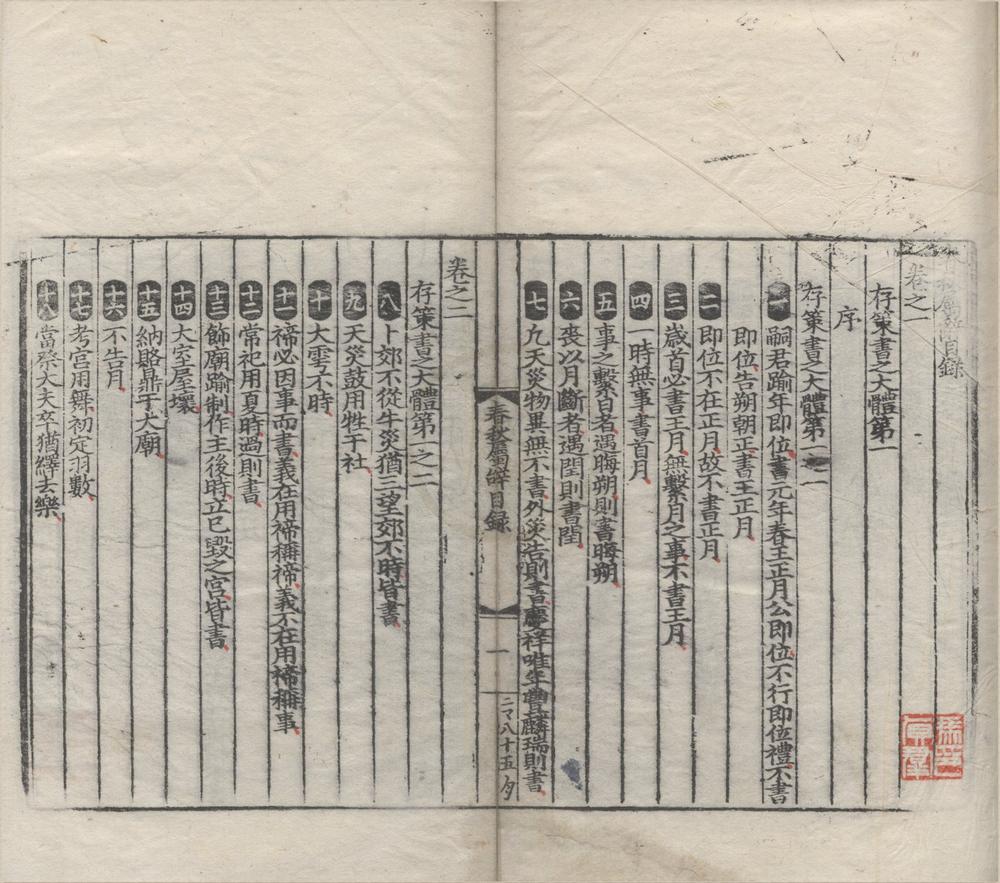 春秋屬辭目録
卷之一
存策書之大體第一
序
存策書之大體第一之一
一 嗣君踰年即位書元年春王正月公即位不行即位禮不書
即位告朔朝正書王正月
二 即位不在正月故不書正月
三 歳首必書王月無繫月之事不書王月
四 一時無事書首月
五 事之繫日者遇晦朔則書晦朔
六 喪以月斷者遇閏則書閏
七 九天災物異無不書外災告則書慶祥唯年豐麟瑞則書
春秋屬辭目録
一
卷之二
存策書之大體第一之二
八 卜郊不從牛災猶三望郊不時皆書
九 天災鼓用牲于社
十 大雩不時
十一 禘必因事而書義在用禘稱禘義不在用禘稱事
十二 常祀用夏時過則書
十三 飾廟踰制作主後時立已毀之宮皆書
十四 大室屋壞
十五 納賂鼎于大廟
十六 不告月
十七 考宮用舞初定羽數
十八 當祭大夫卒猶繹去樂